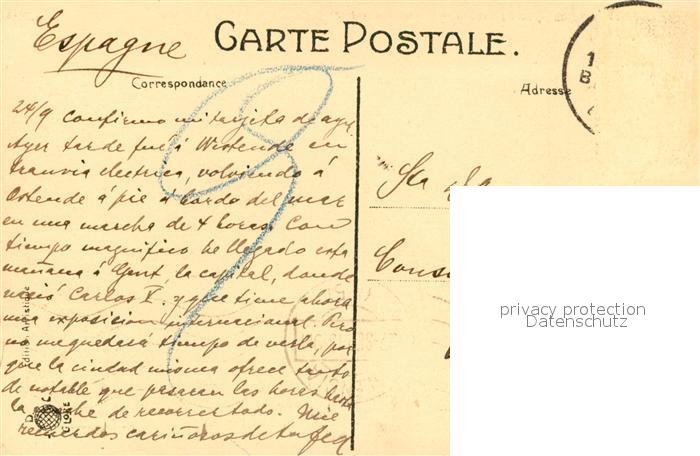 Espagne
CARTE POSTALE.
Correspondance
Adresse
24/9 Confirmo mi tarjita de ayer.
Ayer tarde fuí á Westende en
tranvia electrica, volviendo á
Ostende á pie á bordo del mar
en una marcha de 4 horas. Con
tiempo magnífico he llegado esta
mañana á Gent la capital, donde
nació Carlos V. y que tiene ahora
una exposicion internacional. Pero
no me quedará tiempo de verla, por
que la ciudad misma ofrece tanto
de notable que pasaran las horas hasta
la noche de recorrer todo. Mil
recuerdos cariñosos de tu
Sra
Cons
privacy protection
Datenschutz